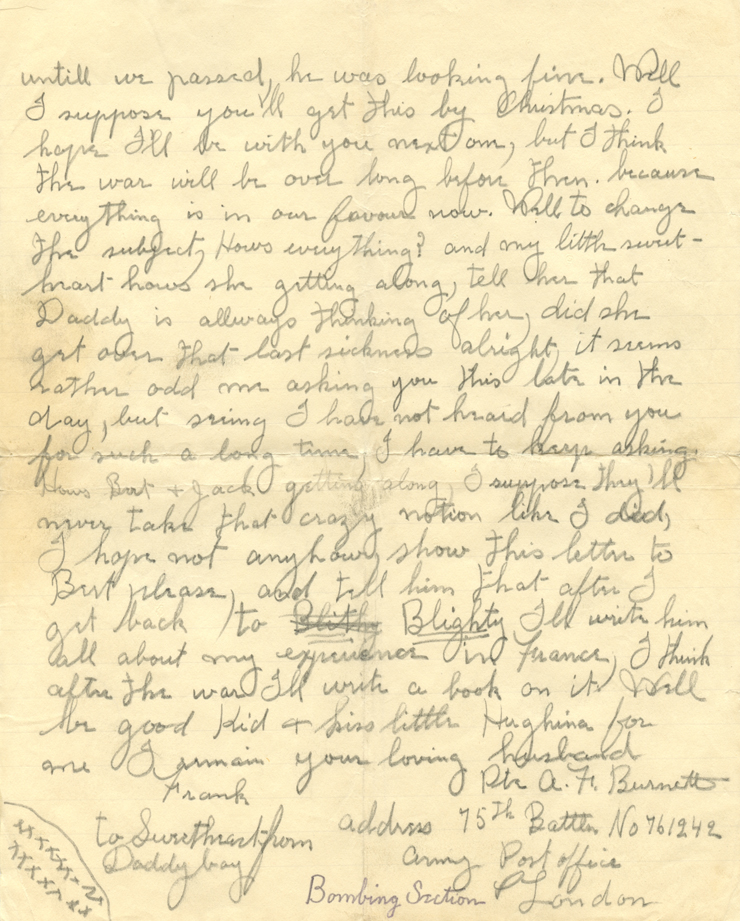 untill we passed, he was looking fine. Well
I suppose you'll get this by Christmas. I
hope I'll be with you next one, but I think
the war will be over long before then. because
everything is in our favour now. Well to change
the subject, Hows everything? and my little sweet-
heart hows she getting along, tell her that
Daddy is allways thinking of her, did she
get over that last sickness alright, it seems
rather odd me asking you this late in the
day, but seing I have not heard from you
for such a long time, I have to keep asking.
Hows Bert + Jack getting along, I suppose they'll
never take that crazy notion like I did,
I hope not anyhow, show this letter to
Bert please, and tell him that after I
get back to Blithy Blighty I'll write him
all about my experience in France, I think
after the war I'll write a book on it. Well
be good Kid + kiss little Hughina for
me I remain your loving husband
Frank Pte A. F. Burnett
to Sweetheart from address 75th Battln No 761242
Daddy boy Army Post office
Bombing Section London
xxxxxxx
xxxxxxxx